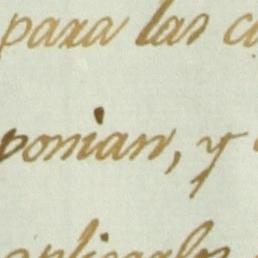 para las c
ponian, y